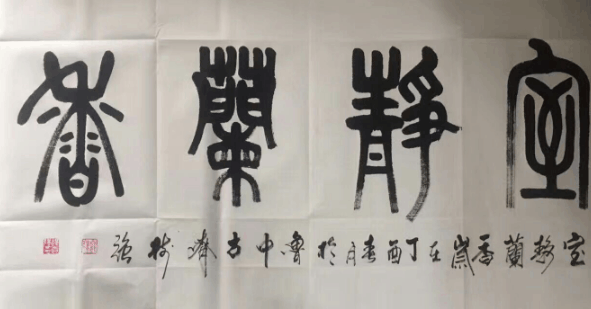 室靜蘭香
室靜蘭香歲在丁酉春月於魯中古齊樹強